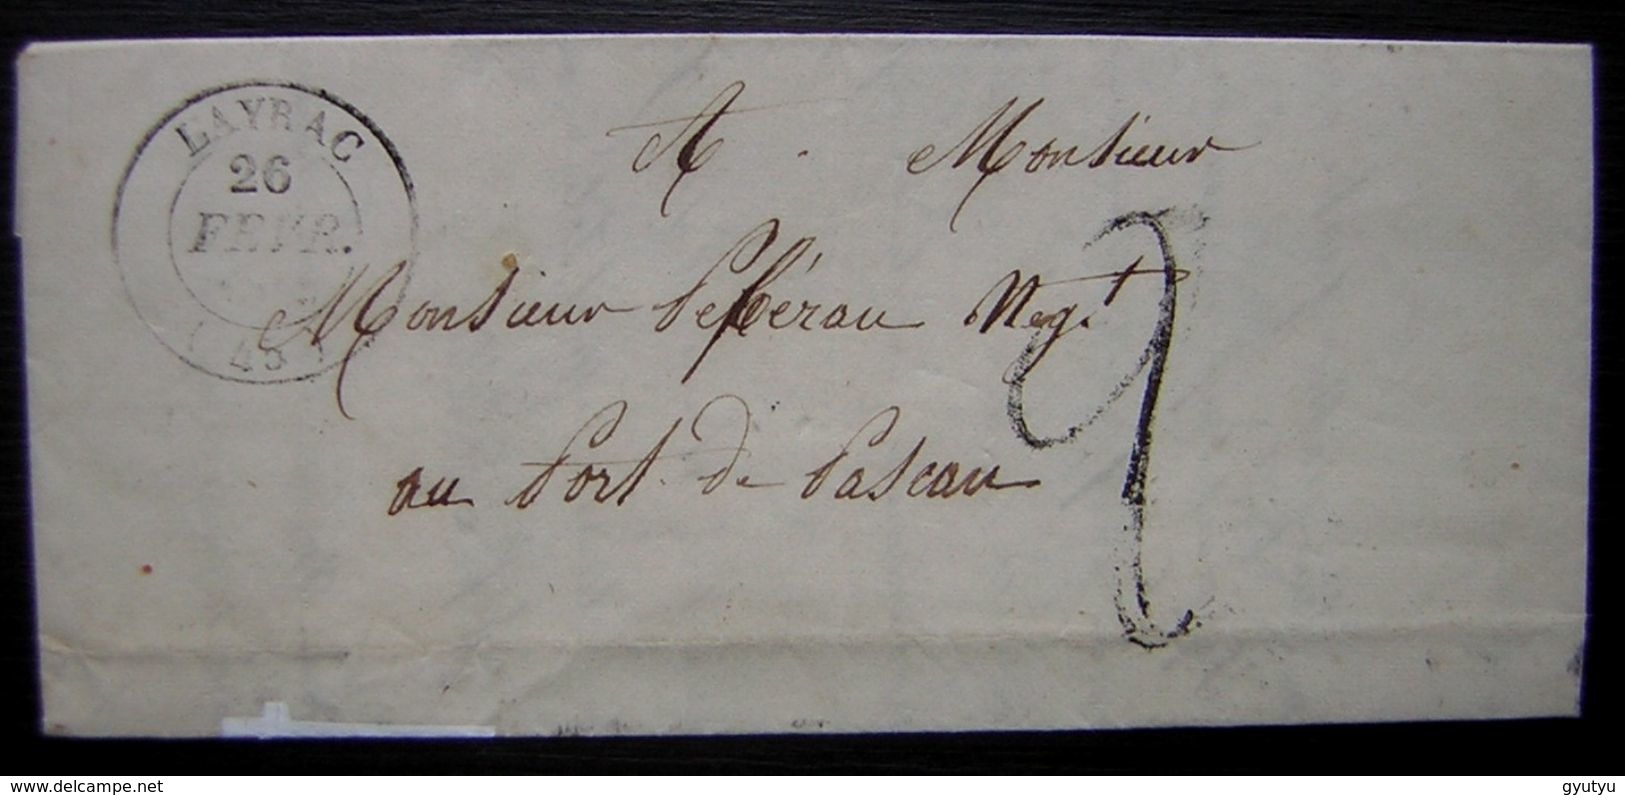 LAYRAC
26
FEVR.
(45)
A Monsieur
Monsieur Negt
au Port de Pascau
2
delcampe.net
gyutyu